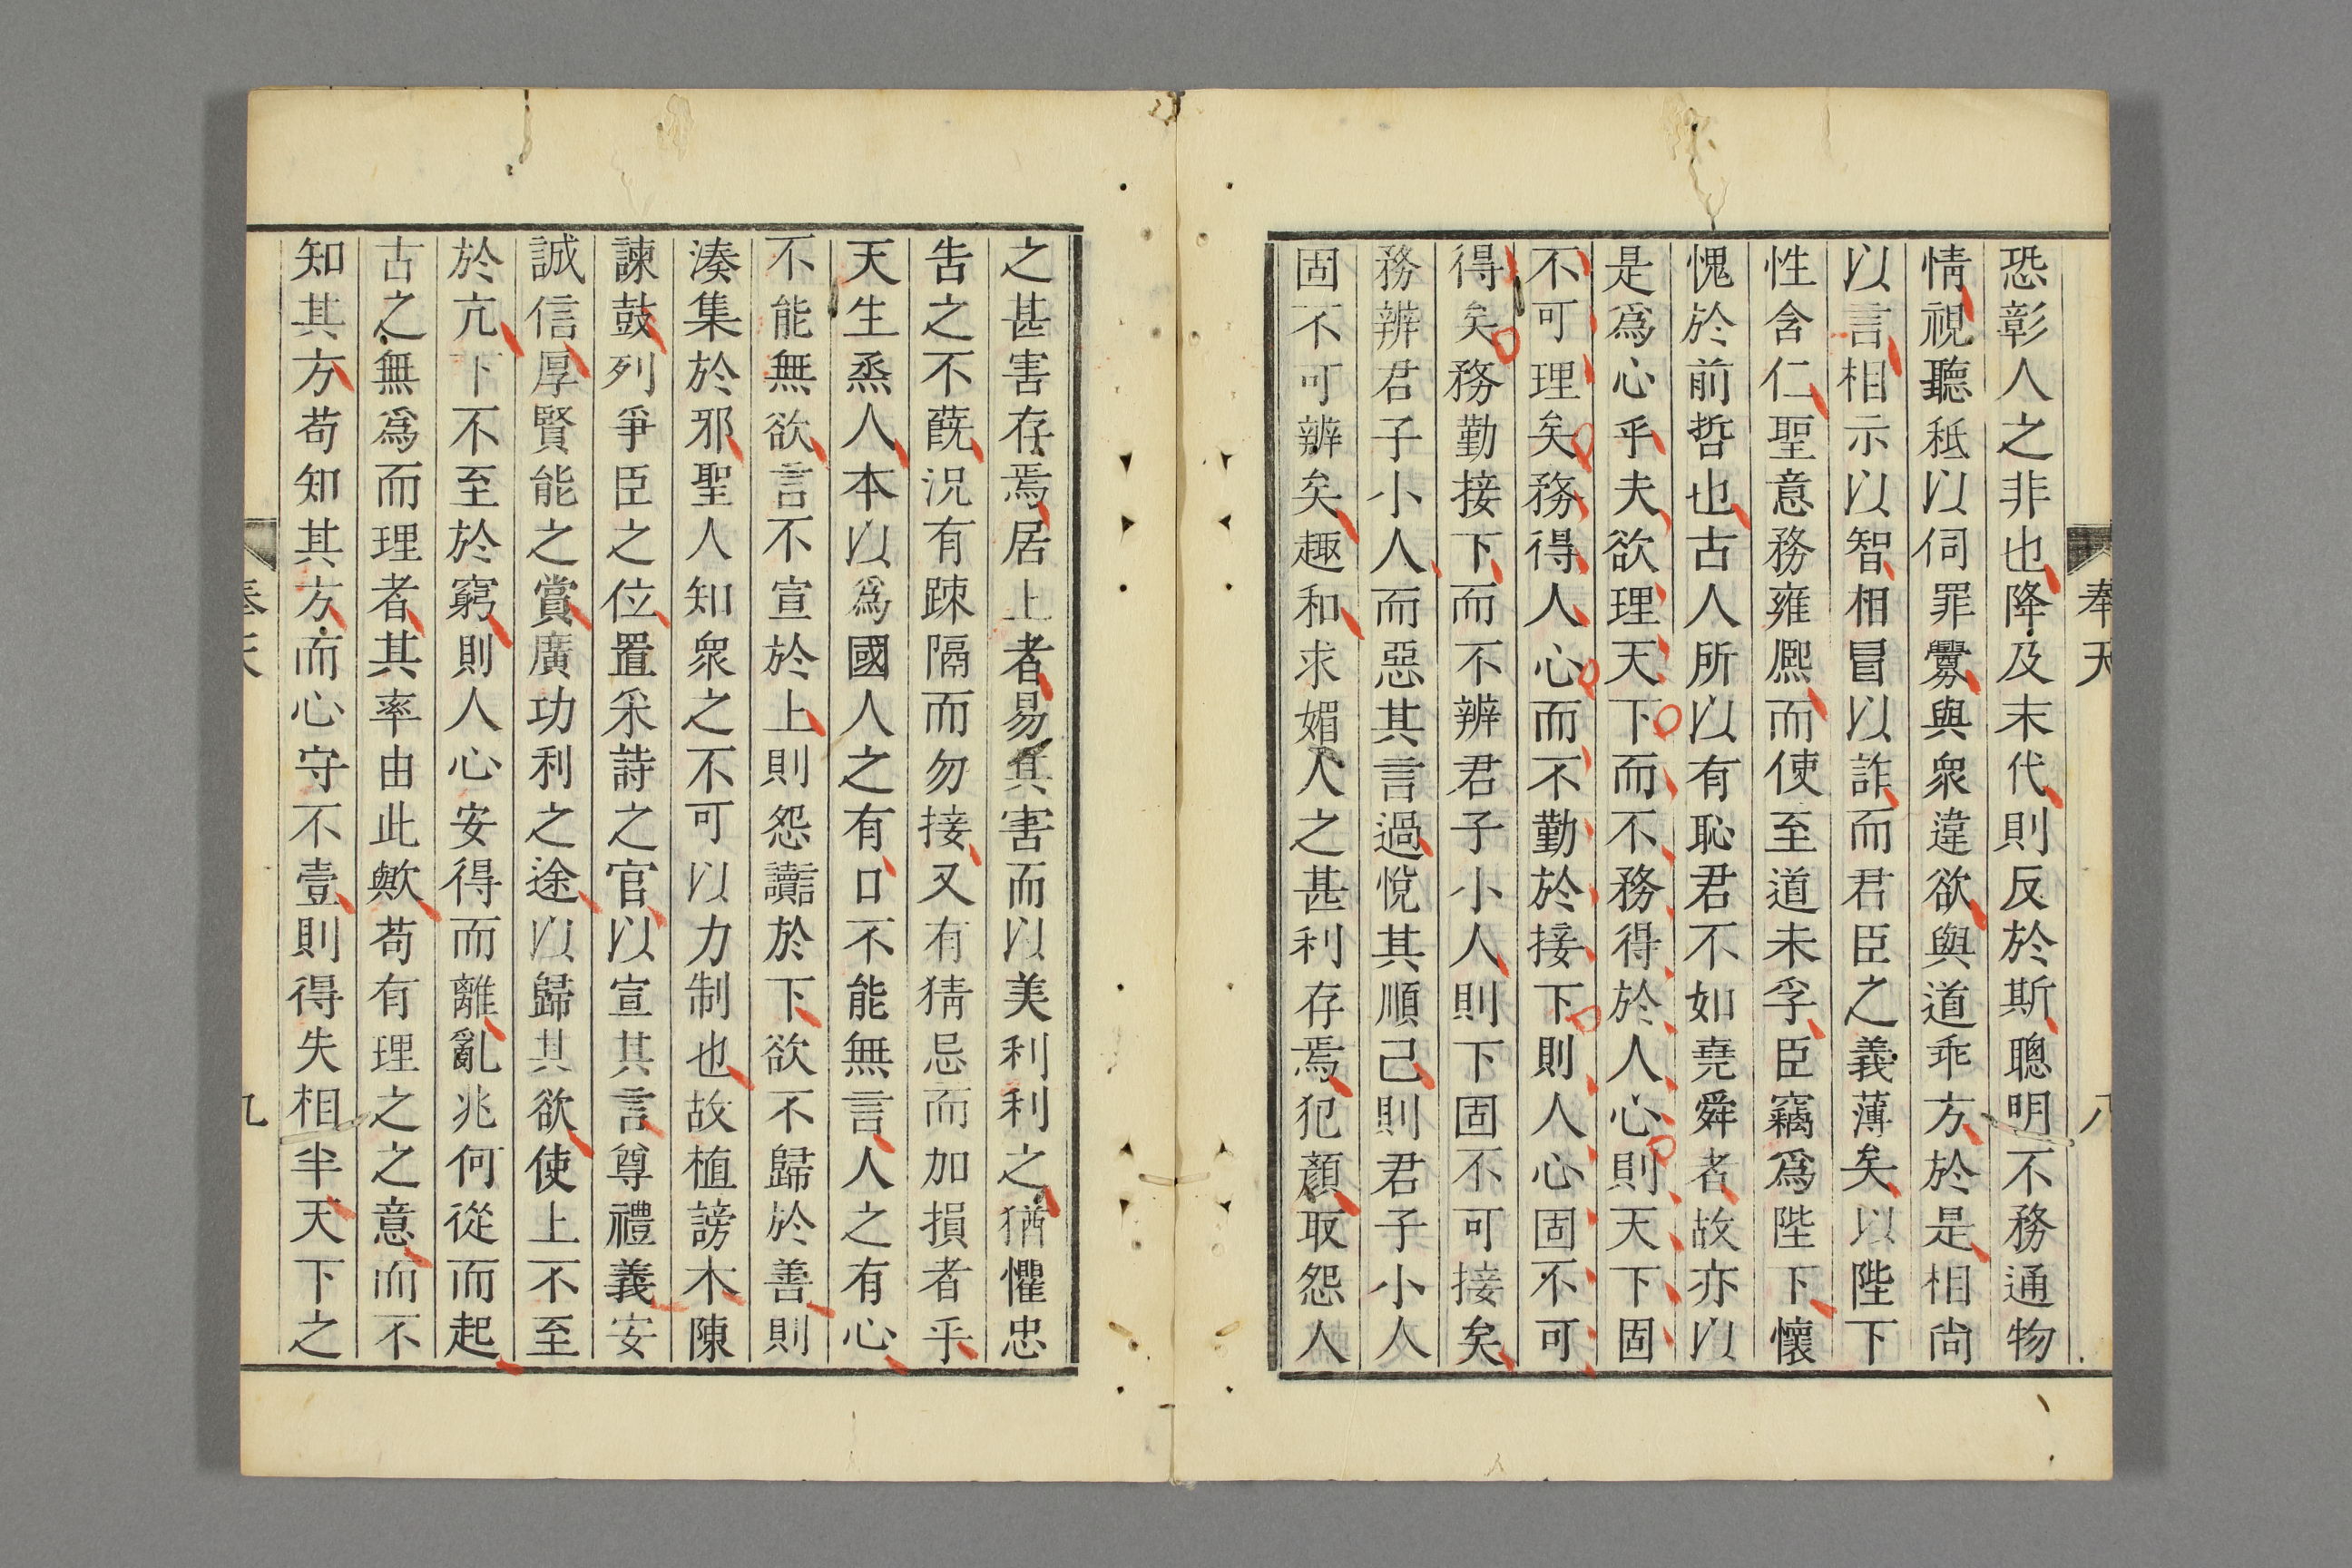 奉天
八
恐彰人之非也降及末代則反於斯聰明不務通物
情視聽秪以伺罪釁與衆違欲與道乖方於是相尙
以言相示以智相冒以詐而君臣之義薄矣以陛下
性含仁聖意務雍熈而使至道未孚臣竊爲陛下懷
愧於前哲也古人所以有恥君不如堯舜者故亦以
是爲心乎夫欲理天下而不務得於人心則天下固
不可理矣務得人心而不勤於接下則人心固不可
得矣務勤接下而不辨君子小人則下固不可接矣
務辨君子小人而惡其言過悅其順己則君子小人
固不可辨矣趣和求媚人之甚利存焉犯顏取怨人
之甚害存焉居上者易其害而以美利利之猶懼忠
告之不蔇況有踈隔而勿接又有猜忌而加損者乎
天生烝人本以爲國人之有口不能無言人之有心
不能無欲言不宣於上則怨讟於下欲不歸於善則
湊集於邪聖人知衆之不可以力制也故植謗木陳
諫鼓列爭臣之位置采詩之官以宣其言尊禮義安
誠信厚賢能之賞廣功利之途以歸其欲使上不至
於亢下不至於窮則人心安得而離亂兆何從而起
古之無爲而理者其率由此歟苟有理之之意而不
知其方苟知其方而心守不壹則得失相半天下之
奉天
九